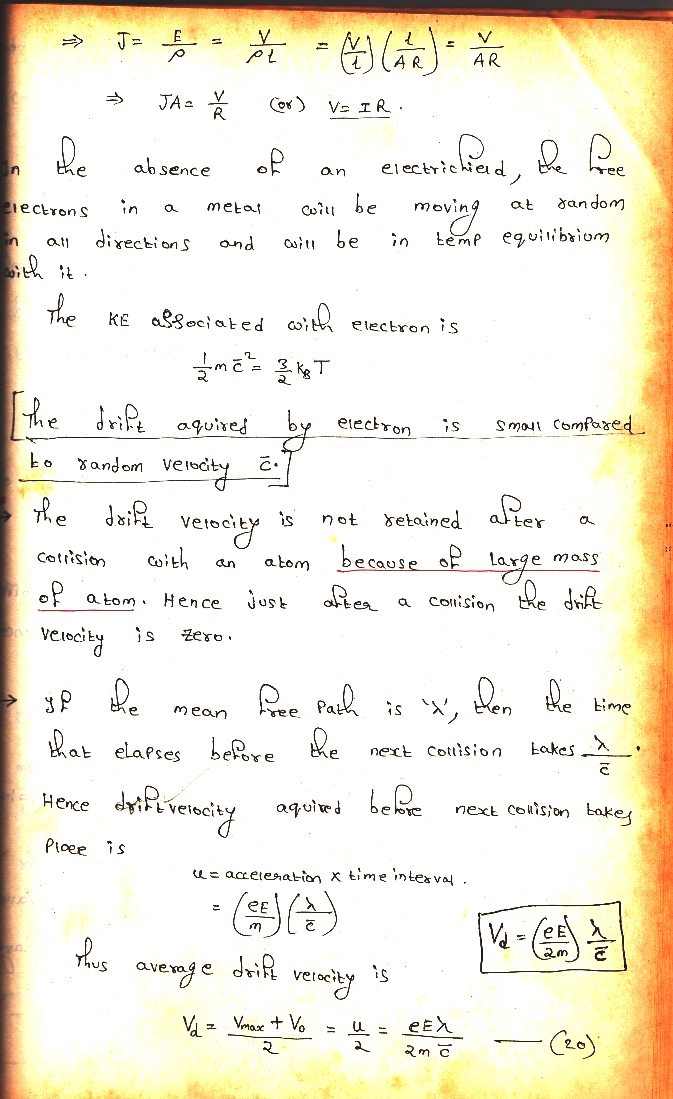 ⇒ J = E/ρ = V/ρl = (V/l) (l/AR) = V/AR
⇒ JA = V/R (or) V = IR .
In the absence of an electricfield, the free
electrons in a metal will be moving at random
in all directions and will be in temp equilibrium
with it .
The KE associated with electron is
1/2 m c̄² = 3/2 k_B T
[The drift aquired by electron is small compared
to random velocity c̄.]
→ The drift velocity is not retained after a
collision with an atom because of large mass
of atom. Hence just after a collision the drift
velocity is zero.
→ If the mean free path is 'λ', then the time
that elapses before the next collision takes λ/c̄ .
Hence drift velocity aquired before next collision takes
place is
u = acceleration x time interval .
= (eE/m) (λ/c̄)
V_d = (eE/2m) λ/c̄
Thus average drift velocity is
V_d = (V_max + V_0)/2 = u/2 = eEλ/2m c̄ — (20)